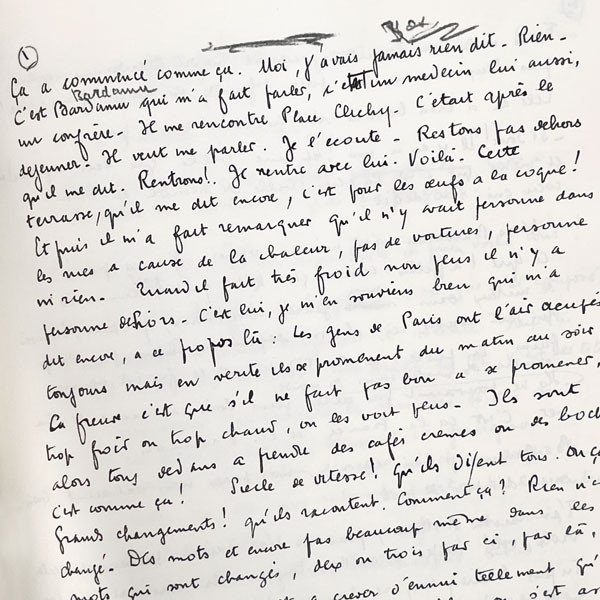 ①
Ça a commencé comme ça. Moi, j'avais jamais rien dit. Rien.
Bardamu
C'est Bardamu qui m'a fait parler, c'etait un medecin lui aussi,
un confrère. Il me rencontre Place Clichy. C'etait après le
dejeuner. Il veut me parler. Je l'ecoute. Restons pas dehors
qu'il me dit. Rentrons! Je rentre avec lui. Voilà. Cette
terrasse, qu'il me dit encore, c'est pour les œufs a la coque!
Et puis il m'a fait remarquer qu'il n'y avait personne dans
les rues a cause de la chaleur, pas de voitures, personne
ni rien. Quand il fait très froid non plus il n'y a
personne dehors. C'est lui, je m'en souviens bien, qui m'a
dit encore, a ce propos là: Les gens de Paris ont l'air occupés
toujours mais en verite ils se promenent du matin au soir
La preuve c'est que s'il ne fait pas bon a se promener,
trop froid ou trop chaud, on les voit plus. Ils sont
alors tous dedans a prendre des cafés cremes ou des bock
c'est comme ça! Siecle de vitesse! qu'ils disent tous. Ou ça
Grands changements! qu'ils racontent. Comment ça? Rien n'e
changé. Des mots et encore pas beaucoup même dans les
mots qui sont changés, deux ou trois par ci, par là,
a crever d'ennui tellement qu'